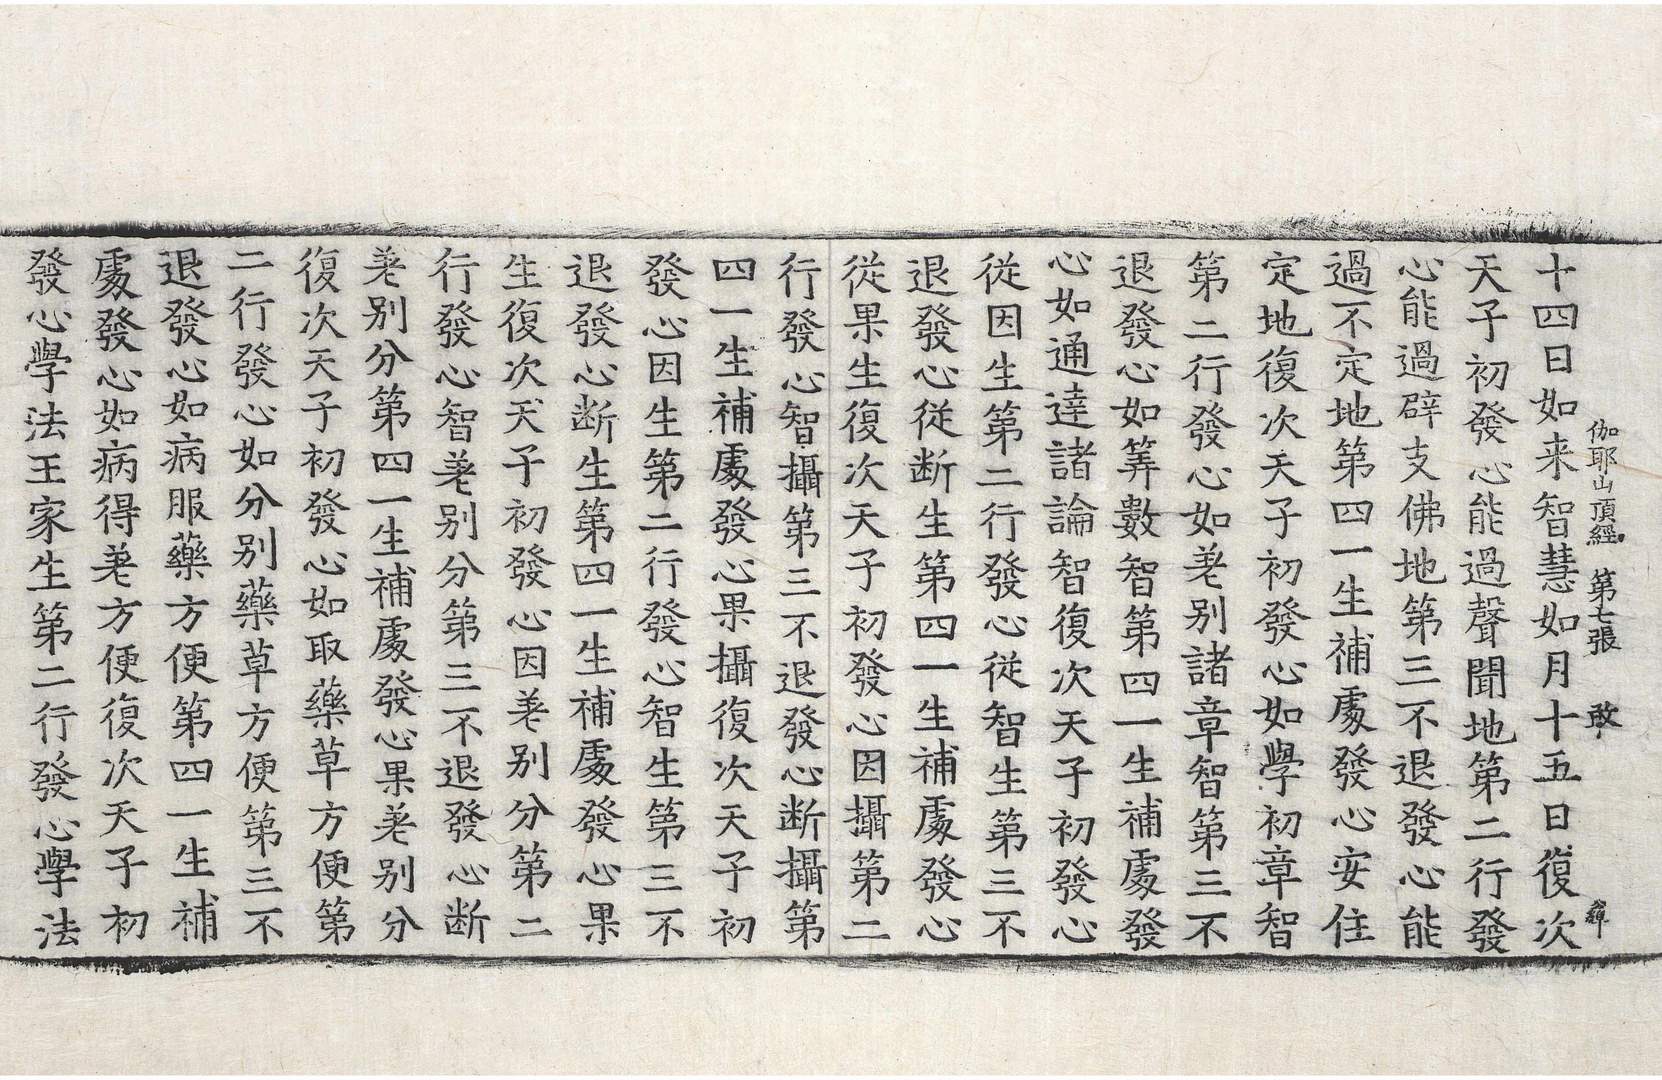 伽耶山頂經 第七張 敢
十四日如来智慧如月十五日復次
天子初發心能過聲聞地第二行發
心能過辟支佛地第三不退發心能
過不定地第四一生補處發心安住
定地復次天子初發心如學初章智
第二行發心如差別諸章智第三不
退發心如筭數智第四一生補處發
心如通達諸論智復次天子初發心
從因生第二行發心従智生第三不
退發心従断生第四一生補處發心
從果生復次天子初發心因攝第二
行發心智攝第三不退發心断攝第
四一生補處發心果攝復次天子初
發心因生第二行發心智生第三不
退發心断生第四一生補處發心果
生復次天子初發心因差別分第二
行發心智差別分第三不退發心断
差別分第四一生補處發心果差別分
復次天子初發心如取藥草方便第
二行發心如分別藥草方便第三不
退發心如病服藥方便第四一生補
處發心如病得差方便復次天子初
發心學法王家生第二行發心學法